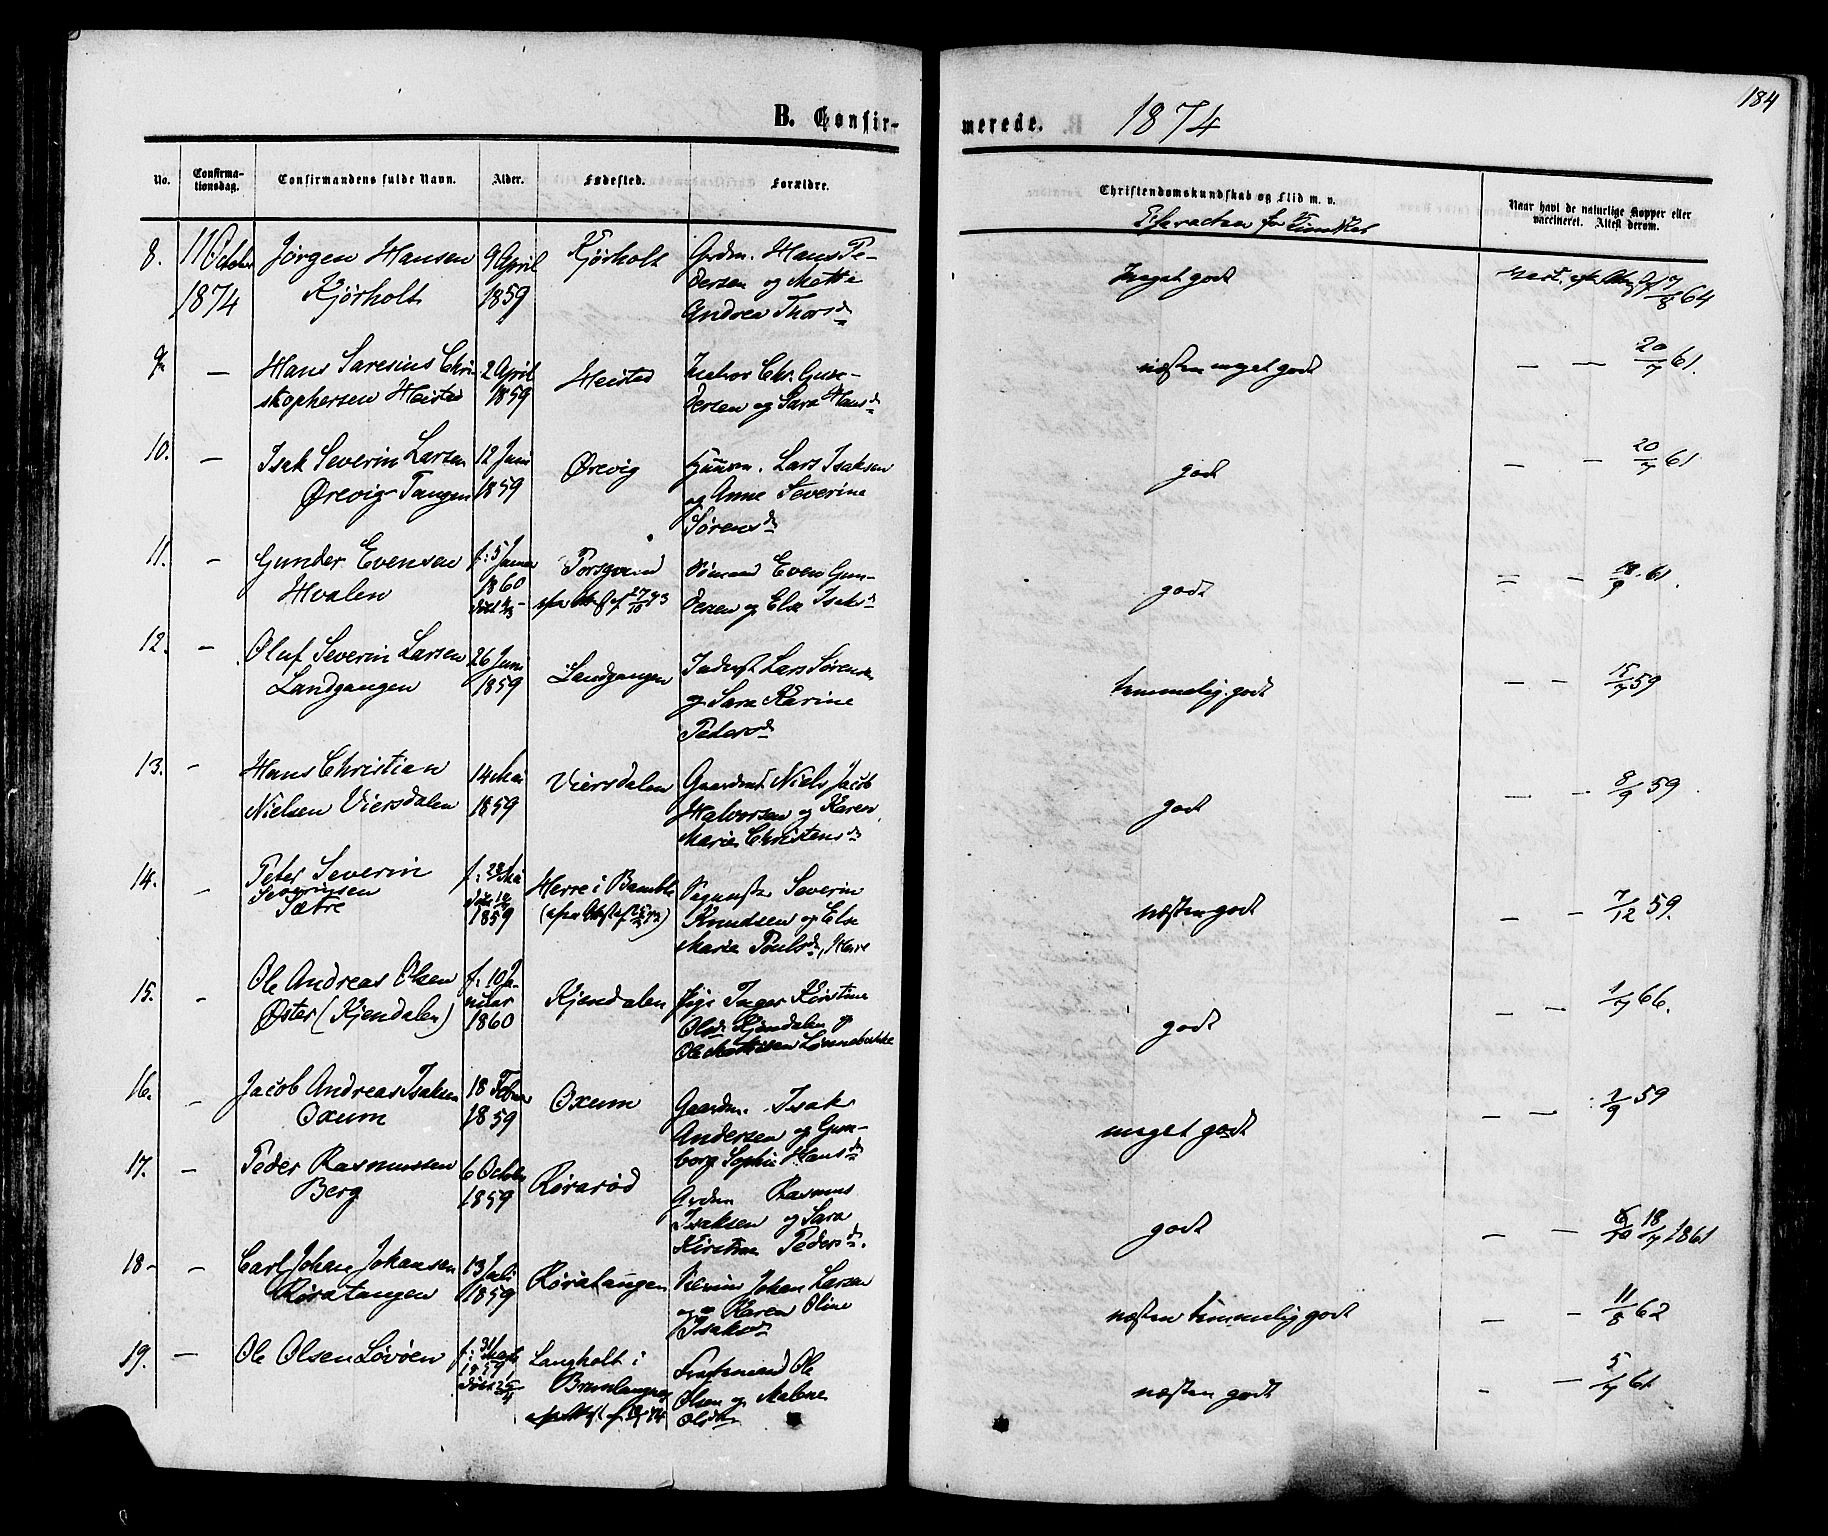 184
B. Confir-
merede. 1874
No.
Confirma-
tionsdag.
Confirmandens fulde Navn.
Alder.
Fødested.
Forældre.
Christendomskundskab og Flid m. v.
Naar havt de naturlige Kopper eller
vaccineret. Attest derom.
8. 11 October
1874
Jørgen Hansen
Kjørholt
9 April
1859
Kjørholt
Grdm. Hans Pe-
dersen og Mette
Andrea Thorsd
Meget godt
17/8 64
9. —
Hans Saresius Chri-
stophersen Heistad
2 April
1859
Heistad
Chr. Gun-
dersen og Sara Hansd
næsten meget godt
— — 20/7 61.
10. —
Isak Severin Larsen
Ørevig-Tangen
12 Juni
1859
Ørevig
Huusm. Lars Isaksen
og Anne Severine
Sørensd
godt
— — 20/7 61
11. —
Gunder Evensen
Hvalen
f: 5 Januar
1860
Porsgrund
Sømand Even Gun-
dersen og Else Isaksd
godt
— — 18/9 61.
12. —
Oluf Severin Larsen
Landgangen
26 Juni
1859
Landgangen
Inderst Lars Sørensen
og Sara Karine
Pedersd
temmelig godt
— — 15/7 59
13. —
Hans Christian
Nielsen Viersdalen
14 Mai
1859
Viersdalen
Gaardmd Niels Jacob
Halvorsen og Karen
Marie Christensd
godt
— — 8/9 59
14. —
Peter Severin
Severinsen
Sætre
1859
Herre i Bamble
Severin
Knudsen og Else
Marie Poulsd, Herre
næsten godt
— — 7/12 59.
15. —
Ole Andreas Olsen
Øster (Kjendalen)
f: 10 Ja-
nuar
1860
Kjendalen
Pige Inger Kirstine
Olsd Kjendalen og
Ole Mathisen
godt
— — 1/7 66.
16. —
Jacob Andreas Isaksen
Oxum
18 Februar
1859
Oxum
Gaardm. Isak
Andersen og Gun-
borg Sophie Hansd
meget godt
— — 1/9 59
17. —
Peder Rasmussen
Berg
6 October
1859
Rørarød
Grdm Rasmus
Isaksen og Sara
Kirstine Pedersd.
godt
— — 18/7 1861
18- —
Carl Johan Johansen
Røratangen
13 Juli
1859
Røratangen
Johan Larsen
og Karen Oline
Isaksd
næsten temmelig godt
— — 11/8 62
19. —
Ole Olsen Løvøen
f: 31 Marts
1859
Langholt i
Brunlangnes
Ole
Olsen og Malene
Olsdtr
næsten godt
- — 5/7 61